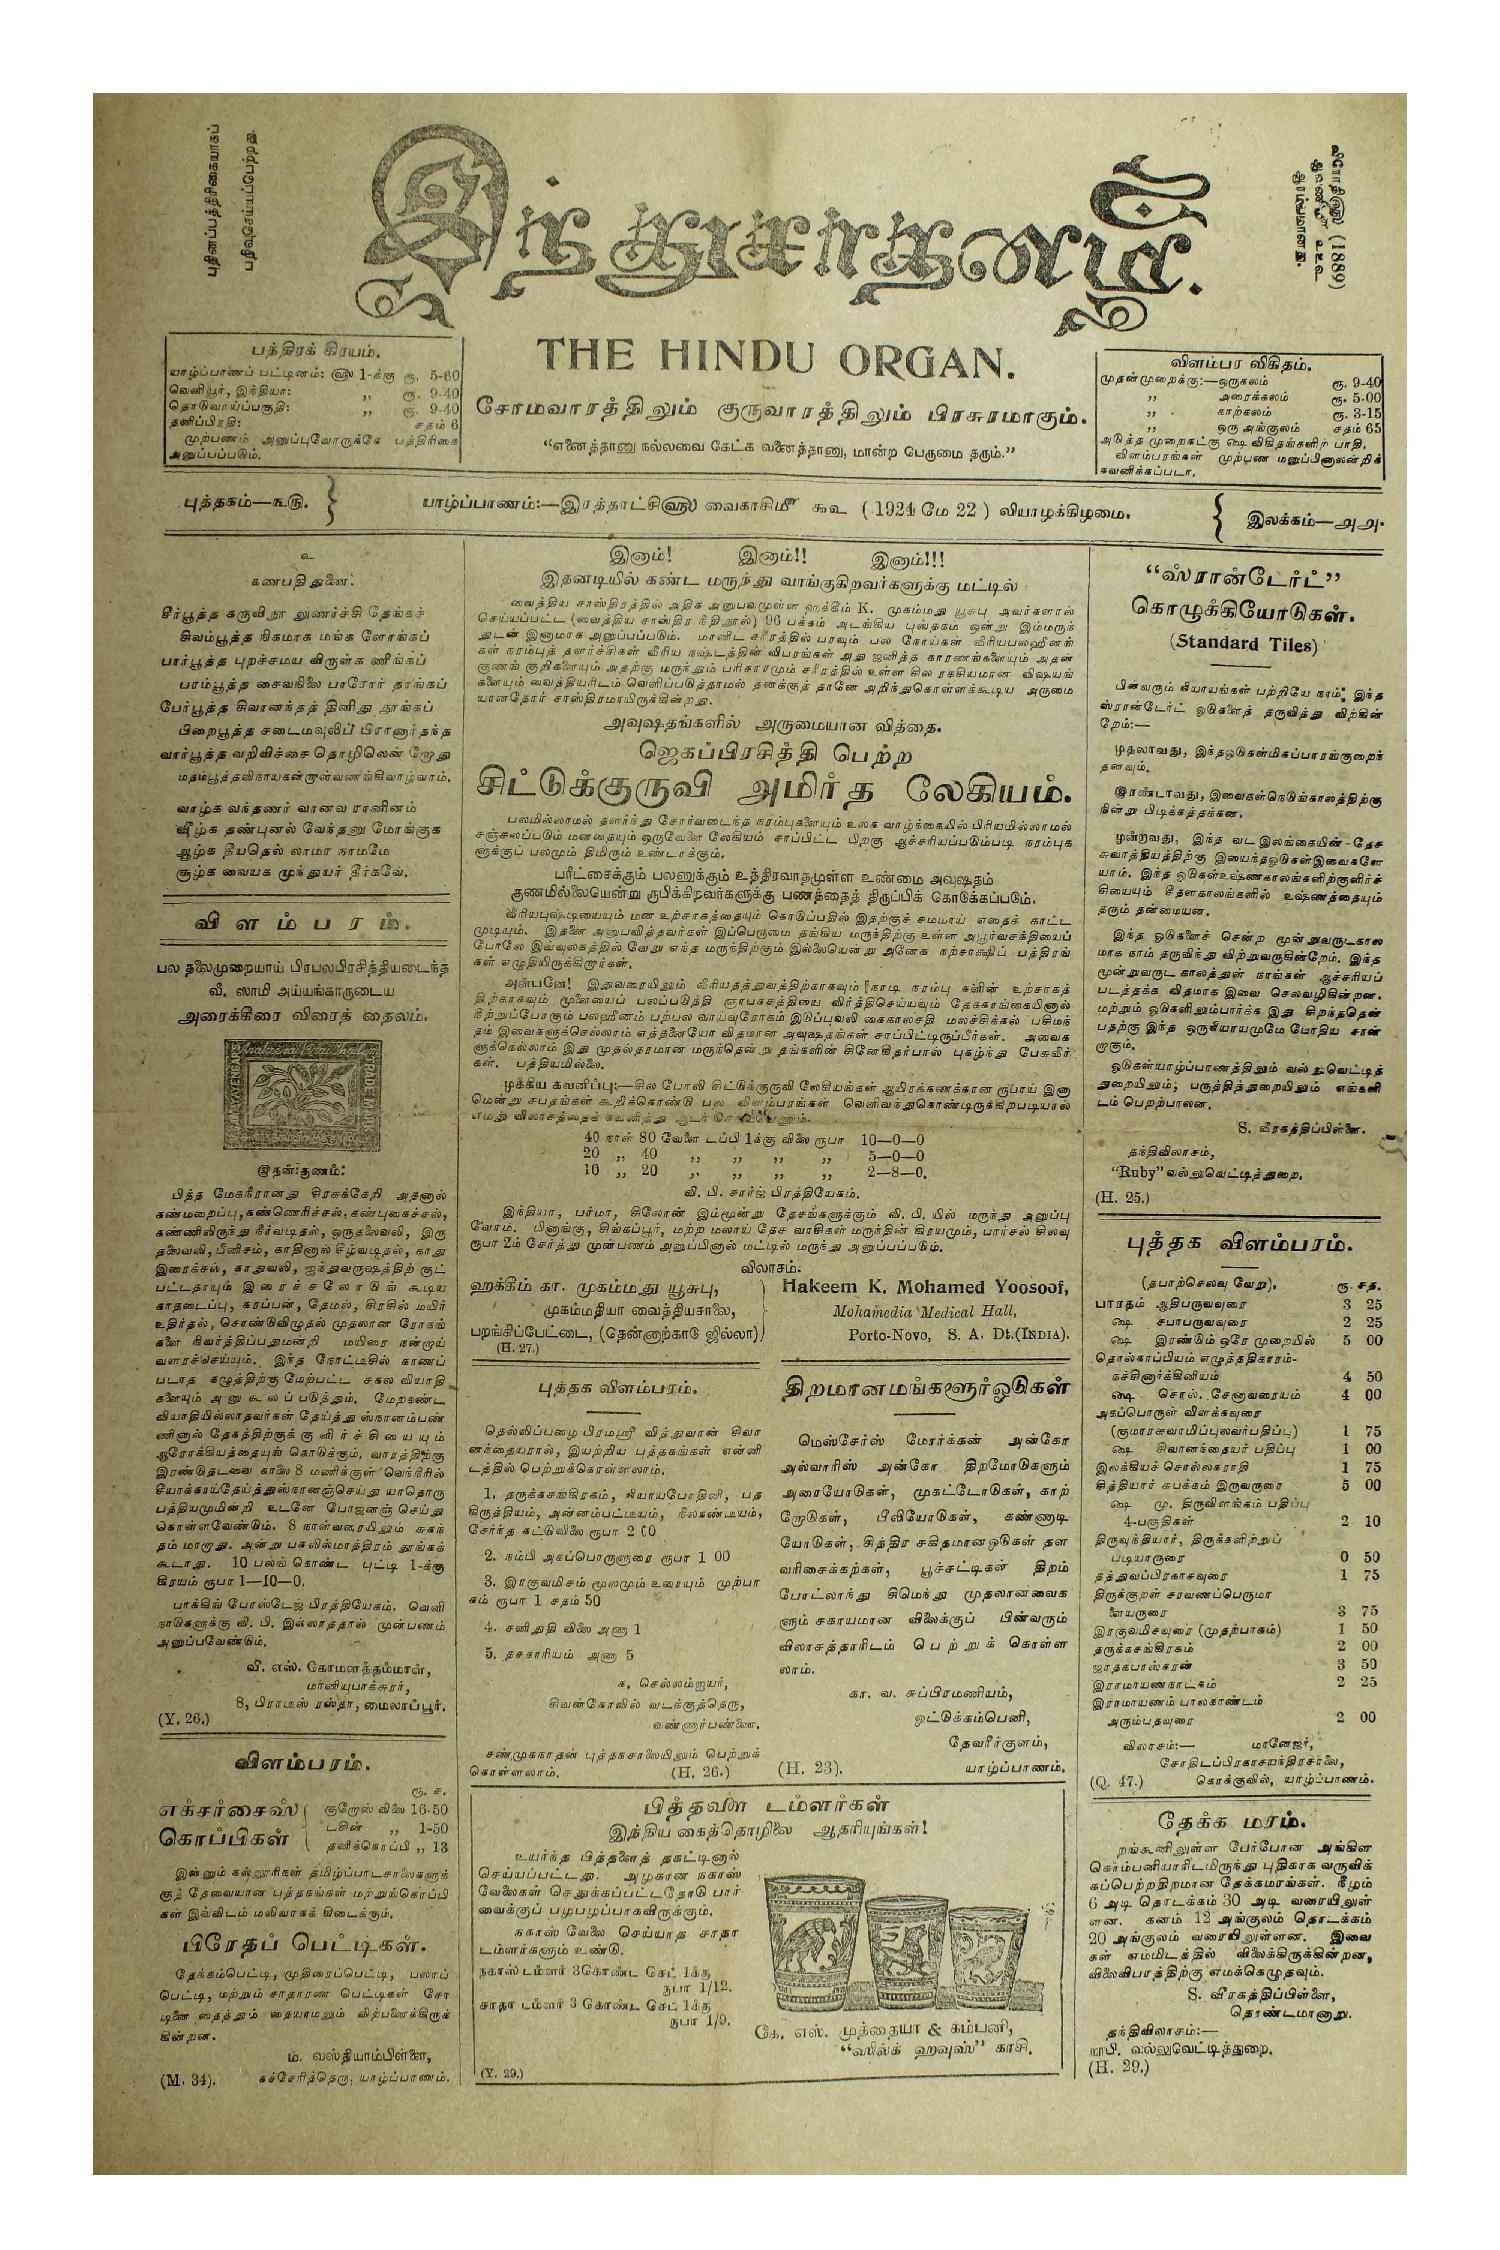 புதினப்பத்திரிகையாகப்
பதிவுசெய்யப்பெற்றது.
இந்துசாதனம்.
(1889)
ஆரம்பமானது.
THE HINDU ORGAN.
சோமவாரத்திலும் குருவாரத்திலும் பிரசுரமாகும்.
“எனைத்தானு நல்லவை கேட்க வனைத்தானு, மான்ற பெருமை தரும்.”
பத்திரக் கிரயம்.
யாழ்ப்பாணப் பட்டினம்: ௵ 1-க்கு ரூ. 5-60
வெளியூர், இந்தியா: ,, ரூ. 9-40
தொடுவாய்ப்பகுதி: ,, ரூ. 9-40
தனிப்பிரதி: சதம் 6
முற்பணம் அனுப்புவோருக்கே பத்திரிகை
அனுப்பப்படும்.
விளம்பர விகிதம்.
முதன்முறைக்கு:—ஒருகலம் ரூ. 9-40
,, அரைக்கலம் ரூ. 5-00
,, காற்கலம் ரூ. 3-15
,, ஒரு அங்குலம் சதம் 65
அடுத்த முறைகட்கு ௸ விகிதங்களிற் பாதி.
விளம்பரங்கள் முற்பண மனுப்பினாலன்றிக்
கவனிக்கப்படா.
புத்தகம்—௩௫.
யாழ்ப்பாணம்:—இரத்தாட்சி௵ வைகாசி௴ ௯௨ (1924 மே 22) வியாழக்கிழமை.
இலக்கம்—௮௮.
உ
கணபதி துணை.
சீர்பூத்த கருவிநூ லுணர்ச்சி தேங்கச்
சிவம்பூத்த நிகமாக மங்க ளோங்கப்
பார்பூத்த புறச்சமய விருள்க ணீங்கப்
பரம்பூத்த சைவநிலை பாரோர் தாங்கப்
பேர்பூத்த சிவானந்தத் தினிது தூங்கப்
பிறைபூத்த சடைமவுலிப் பிரானார்தந்த
வார்பூத்த வறிவிச்சை தொழிலென் றோது
மதம்பூத்தவிநாயகன்றாள்வணங்கிவாழ்வாம்.
வாழ்க வந்தணர் வானவ ரானினம்
வீழ்க தண்புனல் வேந்தனு மோங்குக
ஆழ்க தீயதெல் லாமர நாமமே
சூழ்க வையக முந்துயர் தீர்கவே.
விளம்பரம்.
பல தலைமுறையாய் பிரபலபிரசித்தியடைந்த
வீ. ஸாமி அய்யங்காருடைய
அரைக்கீரை விரைத் தைலம்.
இதன்குணம்:
பித்த மேகநீரானது சிரசுக்கேறி அதனால்
கண்மறைப்பு, கண்ணெரிச்சல், கண்புகைச்சல்,
கண்ணிலிருந்து நீர்வடிதல், ஒருதலைவலி, இரு
தலைவலி, பீனிசம், காதினால் சீழ்வடிதல், காது
இரைச்சல், காதுவலி, ஐந்துவருஷத்திற் குட்
பட்டதாயும் இரைச்சலோடுங் கூடிய
காதடைப்பு, கரப்பன், தேமல், சிரசில் மயிர்
உதிர்தல், சொண்டுவிழுதல் முதலான ரோகங்
களை நிவர்த்திப்பதுமன்றி மயிரை நன்றாய்
வளரச்செய்யும். இந்த நோட்டீசில் காணப்
படாத கழுத்திற்கு மேற்பட்ட சகல வியாதி
களையும் அனுகூலப் படுத்தும். மேற்கண்ட
வியாதியில்லாதவர்கள் தேய்த்து ஸ்நானம்பண்
ணினால் தேகத்திற்குக் குளிர்ச்சியையும்
ஆரோக்கியத்தையுங் கொடுக்கும். வாரத்திற்கு
இரண்டுதடவை காலை 8 மணிக்குள் வெந்நீரில்
சீயாக்காய்தேய்த்துஸ்நானஞ்செய்து யாதொரு
பத்தியமுமின்றி உடனே போஜனஞ் செய்து
கொள்ளவேண்டும். 8 நாள்வரையிலும் சுகந்
தம் மாறாது. அன்று பகலில்மாத்திரம் தூங்கக்
கூடாது. 10 பலங் கொண்ட புட்டி 1-க்கு
கிரயம் ரூபா 1—10—0.
பாக்கிங் போஸ்டேஜ் பிரத்தியேகம். வெளி
நாடுகளுக்கு வி. பி. இல்லாததால் முன்பணம்
அனுப்பவேண்டும்.
வீ. எஸ். கோமளத்தம்மாள்,
மானியுபாக்சுரர்,
8, பிராடீஸ் ரஸ்தா, மைலாப்பூர்.
(Y. 26.)
விளம்பரம்.
ரூ. ச.
எக்சர்சைஸ் குறோஸ் விலை 16-50
கொப்பிகள் டசின் ,, 1-50
தனிக்கொப்பி ,, 13
இன்னும் கல்லூரிகள் தமிழ்ப்பாடசாலைகளுக்
குத் தேவையான புத்தகங்கள் மற்றுங்கொப்பி
கள் இவ்விடம் மலிவாகக் கிடைக்கும்.
பிரேதப் பெட்டிகள்.
தேக்கம்பெட்டி, முதிரைப்பெட்டி, பலாப்
பெட்டி, மற்றும் சாதாரண பெட்டிகள் சோ
டினை தைத்தும் தையாமலும் விற்பனைக்கிருக்
கின்றன.
ம். வஸ்தியாம்பிள்ளை,
(M. 34). கச்சேரித்தெரு, யாழ்ப்பாணம்.
இனாம்! இனாம்!! இனாம்!!!
இதனடியில் கண்ட மருந்து வாங்குகிறவர்களுக்கு மட்டில்
வைத்திய சாஸ்திரத்தில் அதிக அனுபவமுள்ள ஹக்கீம் K. முகம்மது யூசுபு அவர்களால்
செய்யப்பட்ட (வைத்திய சாஸ்திர நீதிநூல்) 96 பக்கம் அடங்கிய புஸ்தகம் ஒன்று இம்மருந்
துடன் இனாமாக அனுப்பப்படும். மானிட சரீரத்தில் பரவும் பல நோய்கள் வீரியபலஹீனங்
கள் நரம்புத் தளர்ச்சிகள் வீரிய நஷ்டத்தின் விபரங்கள் அது ஜனித்த காரணங்களையும் அதன்
குணங் குறிகளையும் அதற்கு மருந்தும் பரிகாரமும் சரீரத்தில் உள்ள சில ரகசியமான விஷயங்
களையும் வைத்தியரிடம் வெளிப்படுத்தாமல் தனக்குத் தானே அறிந்துகொள்ளக்கூடிய அருமை
யானதோர் சாஸ்திரமாயிருக்கின்றது.
அவுஷதங்களில் அருமையான வித்தை.
ஜெகப்பிரசித்தி பெற்ற
சிட்டுக்குருவி அமிர்த லேகியம்.
பலமில்லாமல் தளர்ந்து சோர்வடைந்த நரம்புகளையும் உலக வாழ்க்கையில் பிரியமில்லாமல்
சஞ்சலப்படும் மனதையும் ஒருவேளை லேகியம் சாப்பிட்ட பிறகு ஆச்சரியப்படும்படி நரம்புக
ளுக்குப் பலமும் திமிரும் உண்டாக்கும்.
பரீட்சைக்கும் பலனுக்கும் உத்திரவாதமுள்ள உண்மை அவுஷதம்
குணமில்லையென்று ரூபிக்கிறவர்களுக்கு பணத்தைத் திருப்பிக் கொடுக்கப்படும்.
வீரியபுஷ்டியையும் மன உற்சாகத்தையும் கொடுப்பதில் இதற்குச் சமமாய் எதைக் காட்ட
முடியும். இதனை அனுபவித்தவர்கள் இப்பெருமை தங்கிய மருந்திற்கு உள்ள அபூர்வசக்தியைப்
போலே இவ்வுலகத்தில் வேறு எந்த மருந்திற்கும் இல்லையென்று அனேக நற்சாக்ஷிப் பத்திரங்
கள் எழுதியிருக்கிறார்கள்.
அன்பனே! இதுவரையிலும் வீரியதத்துவத்திற்காகவும் நாடி நரம்பு களின் உற்சாகத்
திற்காகவும் மூளையைப் பலப்படுத்தி ஞாபகசக்தியை விர்த்திசெய்யவும் தேகதாங்கையினால்
நீற்றுப்போகும் பலஹீனம் பற்பல வாய்வுரோகம் இடுப்புவலி கைகாலசதி மலச்சிக்கல் பசிமந்
தம் இவைகளுக்கெல்லாம் எத்தனையோ விதமான அவுஷதங்கள் சாப்பிட்டிருப்பீர்கள். அவைக
ளுக்கெல்லாம் இது முதல்தரமான மருந்தென்று தங்களின் சினேகிதர்பால் புகழ்ந்து பேசுவீர்
கள். பத்தியமில்லை.
முக்கிய கவனிப்பு:—சில போலி சிட்டுக்குருவி லேகியங்கள் ஆயிரக்கணக்கான ரூபாய் இனா
மென்று சபதங்கள் கூறிக்கொண்டு பல விளம்பரங்கள் வெளிவந்துகொண்டிருக்கிறபடியால்
எமது விலாசத்தைக் கவனித்து ஆடர் செய்யவேணும்.
40 நாள் 80 வேளை டப்பி 1க்கு விலை ரூபா 10—0—0
20 ,, 40 ,, ,, ,, ,, 5—0—0
10 ,, 20 ,, ,, ,, ,, 2—8—0.
வி. பி. சார்ஜ் பிரத்தியேகம்.
இந்தியா, பர்மா, சிலோன் இம்மூன்று தேசங்களுக்கும் வி. பி. யில் மருந்து அனுப்பு
வோம். பினாங்கு, சிங்கப்பூர், மற்ற மலாய் தேச வாசிகள் மருந்தின் கிரயமும், பார்சல் சிலவு
ரூபா 2ம் சேர்த்து முன்பணம் அனுப்பினால் மட்டில் மருந்து அனுப்பப்படும்.
விலாசம்:
ஹக்கீம் கா. முகம்மது யூசுபு,
முகம்மதியா வைத்தியசாலை,
பறங்கிப்பேட்டை, (தென்னாற்காடு ஜில்லா)
(H. 27.)
Hakeem K. Mohamed Yoosoof,
Mohamedia Medical Hall,
Porto-Novo, S. A. Dt.(INDIA).
புத்தக விளம்பரம்.
தெல்லிப்பழை பிரமஸ்ரீ வித்துவான் சிவா
னந்தையரால், இயற்றிய புத்தகங்கள் என்னி
டத்தில் பெற்றுக்கொள்ளலாம்.
1. தருக்கசங்கிரகம், நியாயபோதினி, பத
கிருத்தியம், அன்னம்பட்டீயம், நீலகண்டீயம்,
சேர்ந்த கட்டுவிலை ரூபா 2 00
2. நம்பி அகப்பொருளுரை ரூபா 1 00
3. இரகுவமிசம் மூலமும் உரையும் முற்பா
கம் ரூபா 1 சதம் 50
4. சனிதுதி விலை அணா 1
5. தசகாரியம் அணா 5
க. செல்லம்ஐயர்,
சிவன்கோவில் வடக்குத்தெரு,
வண்ணார்பண்ணை.
சண்முகநாதன் புத்தகசாலையிலும் பெற்றுக்
கொள்ளலாம். (H. 26.)
திறமானமங்களூர்ஓடுகள்
மெஸ்சேர்ஸ் மோர்க்கன் அன்கோ
அல்வாரிஸ் அன்கோ திறமோடுகளும்
அரையோடுகள், முகட்டோடுகள், காற்
றோடுகள், பீலியோடுகள், கண்ணாடி
யோடுகள், சித்திர சகிதமானஓடுகள் தள
வரிசைக்கற்கள், பூச்சட்டிகள் திறம்
போட்லாந்து சிமெந்து முதலானவைக
ளும் சகாயமான விலைக்குப் பின்வரும்
விலாசத்தாரிடம் பெற்றுக் கொள்ள
லாம்.
கா. வ. சுப்பிரமணியம்,
ஓட்டுக்கம்பெனி,
தேவரீர்குளம்,
(H. 23). யாழ்ப்பாணம்.
பித்தளை டம்ளர்கள்
இந்திய கைத்தொழிலை ஆதரியுங்கள்!
உயர்ந்த பித்தளைத் தகட்டினால்
செய்யப்பட்டது. அழகான நகாஸ்
வேலைகள் செதுக்கப்பட்டதோடு பார்
வைக்குப் பழபழப்பாகவிருக்கும்.
நகாஸ் வேலை செய்யாத சாதா
டம்ளர்களும் உண்டு.
நகாஸ் டம்ளர் 3கொண்ட செட் 1க்கு
ரூபா 1/12.
சாதா டம்ளர் 3 கொண்ட செட் 1க்கு
ரூபா 1/9.
கே. எஸ். முத்தையா & கம்பனி,
“ஸில்க் ஹவுஸ்” காசி.
(Y. 29.)
“ஸ்ரான்டேர்ட்”
கொழுக்கியோடுகள்.
(Standard Tiles)
பின்வரும் நியாயங்கள் பற்றியே நாம் இந்த
ஸ்ரான்டேர்ட் ஓடுகளைத் தருவித்து விற்கின்
றேம்:—
முதலாவது, இந்தஓடுகள்மிகப்பாரங்குறைந்
தனவும்.
இரண்டாவது, இவைகள்நெடுங்காலத்திற்கு
நின்று பிடிக்கத்தக்கன.
மூன்றாவது, இந்த வட இலங்கையின் தேச
சுவாத்தியத்திற்கு இயைந்தஓடுகள்இவைகளே
யாம். இந்த ஓடுகள்உஷ்ணகாலங்களிற்குளிர்ச்
சியையும் சீதளகாலங்களில் உஷ்ணத்தையும்
தரும் தன்மையன.
இந்த ஓடுகளைச் சென்ற மூன்றுவருடகால
மாக நாம் தருவித்து விற்றுவருகின்றேம். இந்த
மூன்றுவருட காலத்துள் நாங்கள் ஆச்சரியப்
படத்தக்க விதமாக இவை செலவழிகின்றன.
மற்றும் ஓடுகளிலும்பார்க்க இது சிறந்ததென்
பதற்கு இந்த ஒருநியாயமுமே போதிய சான்
றாகும்.
ஓடுகள்யாழ்ப்பாணத்திலும் வல்வெட்டித்
துறையிலும்; பருத்தித்துறையிலும் எங்களி
டம் பெறற்பாலன.
S. வீரகத்திப்பிள்ளை.
தந்திவிலாசம்,
“Ruby” வல்லுவெட்டித்துறை.
(H. 25.)
புத்தக விளம்பரம்.
(தபாற்செலவு வேறு). ரூ. சத.
பாரதம் ஆதிபருவவுரை 3 25
௸ சபாபருவவுரை 2 25
௸ இரண்டும் ஒரே முறையில் 5 00
தொல்காப்பியம் எழுத்ததிகாரம்-
நச்சினார்க்கினியம் 4 50
௸ சொல். சேனாவரையம் 4 00
அகப்பொருள் விளக்கவுரை
(குமாரசுவாமிப்புலவர்பதிப்பு) 1 75
௸ சிவானந்தையர் பதிப்பு 1 00
இலக்கியச் சொல்லகராதி 1 75
சித்தியார் சுபக்கம் இருவருரை 5 00
௸ மு. திருவிளங்கம் பதிப்பு
4-பகுதிகள் 2 10
திருவுந்தியார், திருக்களிற்றுப்
படியாருரை 0 50
தத்துவப்பிரகாசவுரை 1 75
திருக்குறள் சரவணப்பெருமா
ளையருரை 3 75
இரகுவமிசவுரை (முதற்பாகம்) 1 50
தருக்கசங்கிரகம் 2 00
ஜாதகபாஸ்கரன் 3 50
இராமாயணநாடகம் 2 25
இராமாயணம் பாலகாண்டம்
அரும்பதவுரை 2 00
விலாசம்:— மானேஜர்,
சோதிடப்பிரகாசயந்திரசாலை,
(Q. 47.) கொக்குவில், யாழ்ப்பாணம்.
தேக்க மரம்.
றங்கூனிலுள்ள பேர்போன அங்கிள
கொம்பனியாரிடமிருந்து புதிதாக வருவிக்
கப்பெற்றதிறமான தேக்கமரங்கள். நீளம்
6 அடி தொடக்கம் 30 அடி வரையிலுள்
ளன. கனம் 12 அங்குலம் தொடக்கம்
20 அங்குலம் வரையிலுள்ளன. இவை
கள் எம்மிடத்தில் விலைக்கிருக்கின்றன,
விலைவிபரத்திற்கு எமக்கெழுதவும்.
S. வீரகத்திப்பிள்ளை,
தொண்டமானாறு.
தந்திவிலாசம்:—
றூபி. வல்லுவெட்டித்துறை.
(H. 29.)